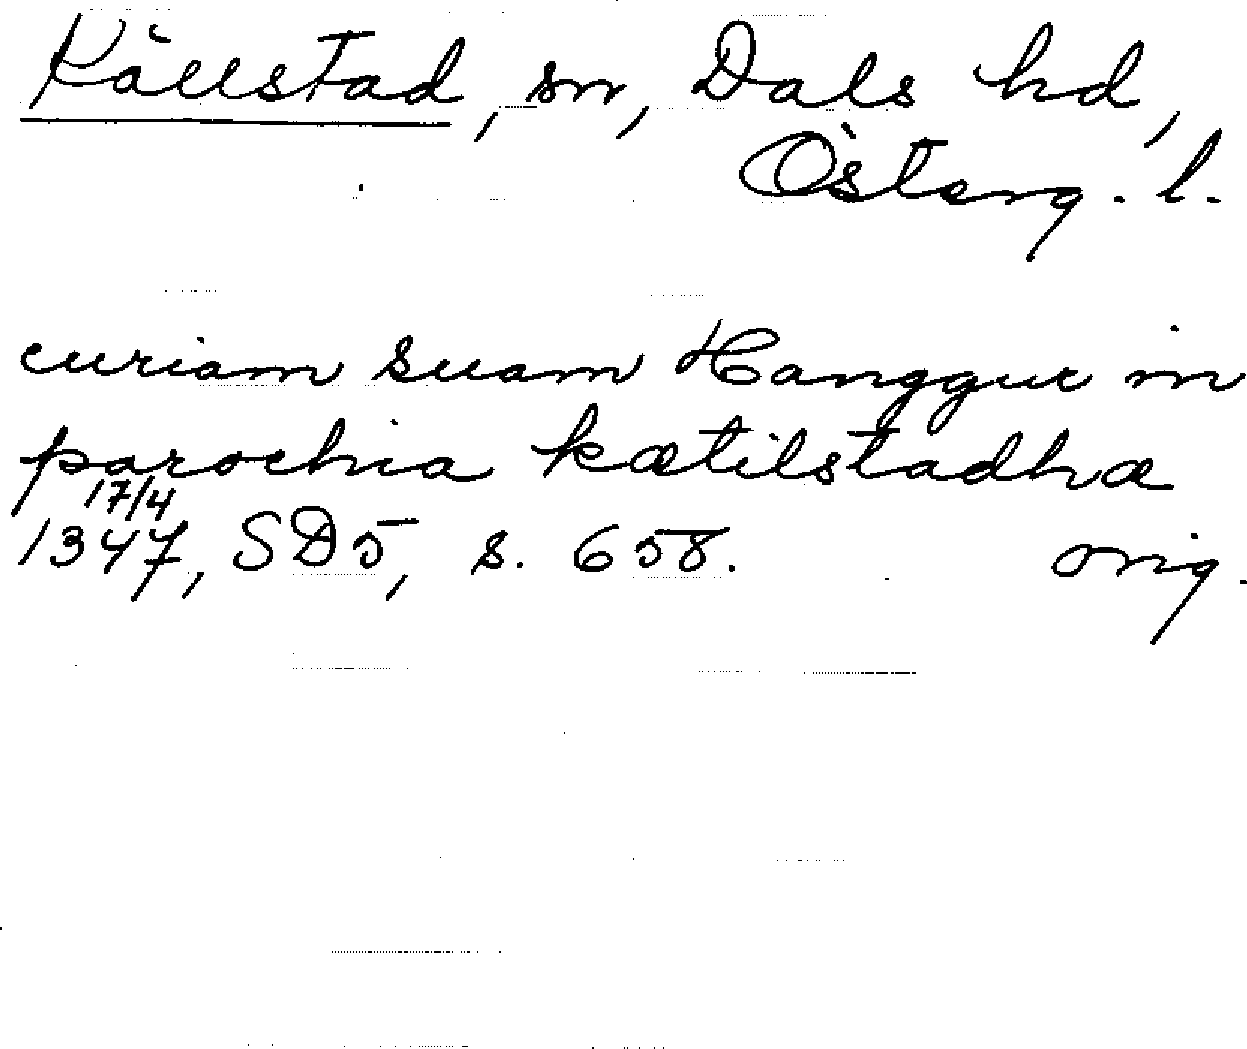 Källstad, sn, Dals hd,
Österg. l.
curiam suam Hanggur in
parochia kætilstadhæ
17/4
1347, SD5, s. 658. orig.